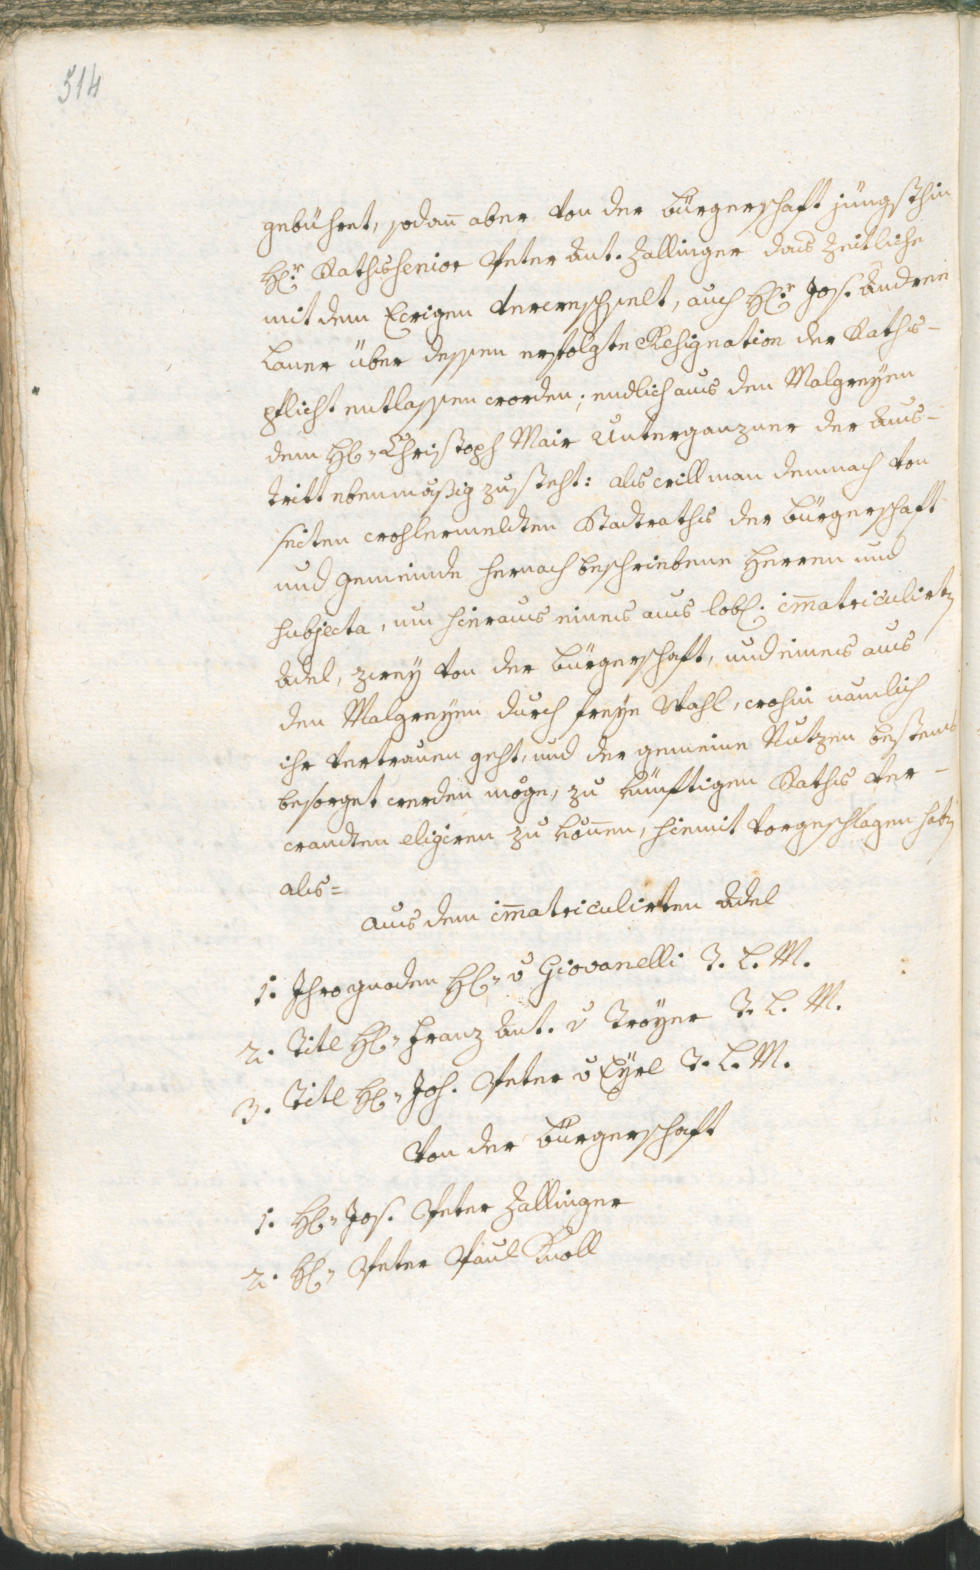 514
gebühret, sodan̄ aber von der bürgerschaft jüngsthin
H: Rathsenior Peter Ant. Zallinger das Zeitliche
mit dem Ewigen verwechselt, auch H: Jos. Andree
Laner über dessen erfolgte Resignation der Raths-
pflicht entlassen worden; endlich aus den Malgreyen
dem H: Christoph Mair Unterganzner der Aus-
tritt ebenmäßig zusteht: als will man demnach von
seiten wohlermeldten Stadtraths der bürgerschaft
und Gemeinde hernach beschriebene Herren und
subjecta, um hieraus eines aus lobl. im̄atriculirtn
Adel, zwey von der bürgerschaft, und eines aus
den Malgreyen durch freye Wahl, wohin nämlich
ihr vertrauen geht, und der gemeine Nutzen bestens
besorget werden möge, zu künftigen Raths ver-
wandten eligiren zu kön̄en, hiemit vorgeschlagen habn
als=
aus dem im̄atriculirten Adel
1. Ihro gnaden H: v Giovanelli T. L. M.
2. Titl H: Franz Ant. v Troyer T. L. M.
3. Titl H: Joh. Peter v Eyrl T. L. M.
Von der bürgerschaft
1. H: Jos. Peter Zallinger
2. H: Peter Paul Knoll